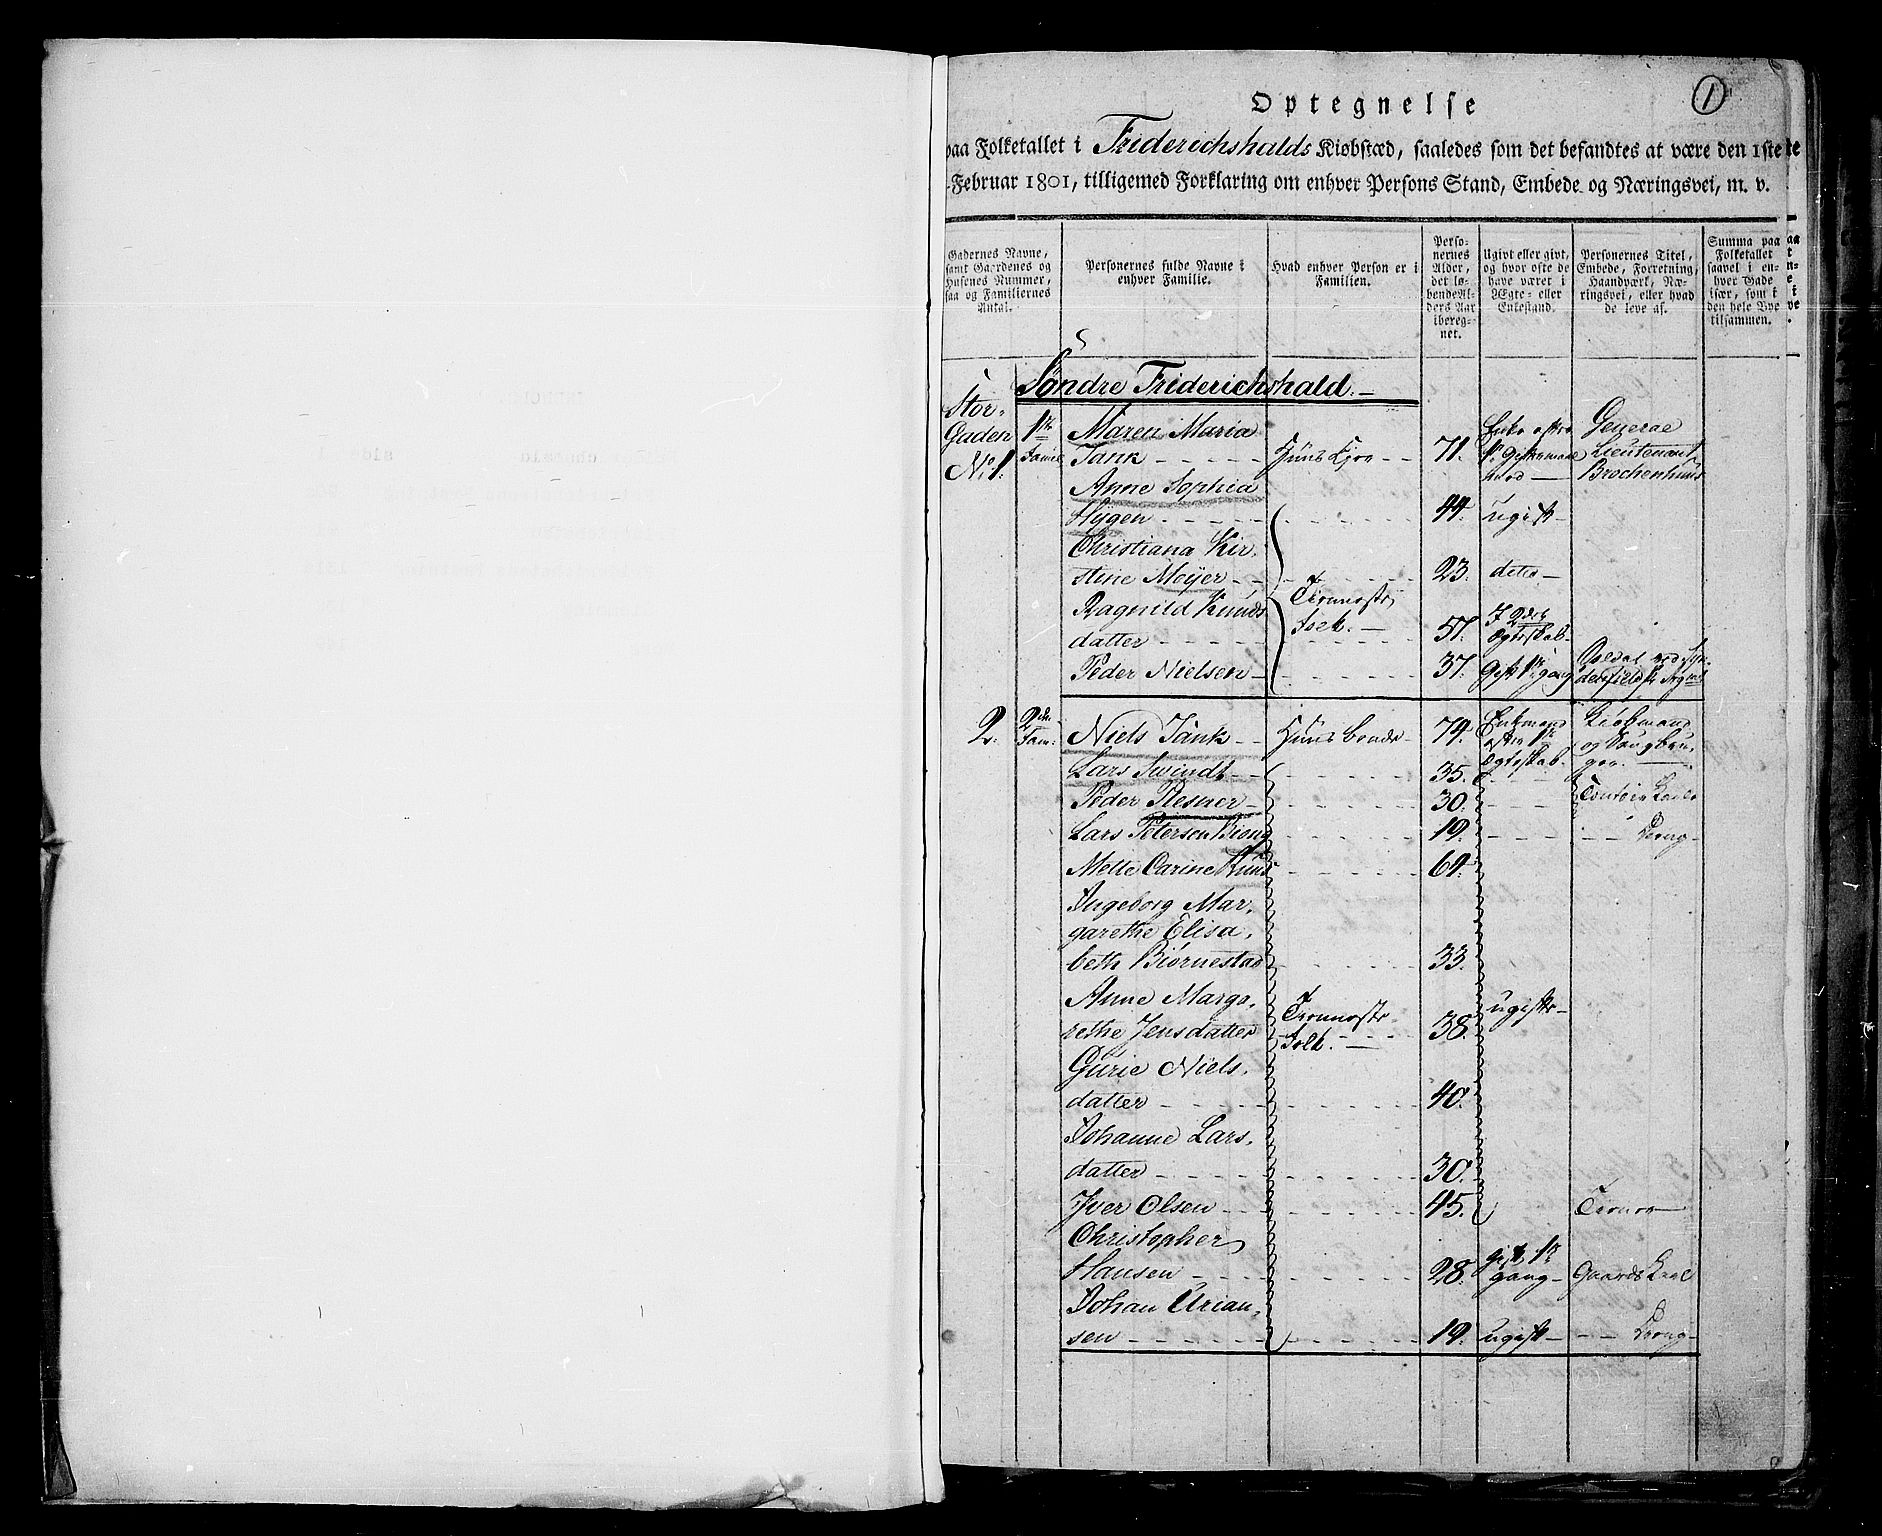 1
Optegnelse
paa Folketallet i Friderichshalds Kiøbstæd, saaledes som det befandtes at være den 1ste
Februar 1801, tilligemed Forklaring om enhver Persons Stand, Embede og Næringsvei, m. v.
Gadernes Navne,
samt Gaardenes og
Husenes Nummer,
saa og Familiernes
Antal.
Personernes fulde Navne i
enhver Familie.
Hvad enhver Person er i
Familien.
Perso-
nernes
Alder,
det lø-
bende Al-
ders Aar
iberegnet.
Ugivt eller givt,
og hvor ofte de
have været i
Ægte- eller
Enkestand.
Personernes Titel,
Embede, Forretning,
Haandværk, Næ-
ringsvei, eller hvad
de leve af.
Summa paa
Folketallet
saavel i en-
hver Gade
især, som i
den hele Bye
tilsammen.
Søndre Friderichshald.
Stor-
Gaden
No 1.
1te
Famil
Maren Maria
Tank Huus 71. General
Lieutenant
Anne Sophia
Hygen 44. ugift
Christiana Kir-
stine Meyer 23. dito
Ragnild Knuds
datter 57. 2det
Tieneste
Folk.
Peder Nielsen 37. gift 1te gang
2. 2den
Fam:
Niels Tank Huusbonde 74. Enkemand
efter 1te
Egteskab.
Kiøbmand
og
Lars Swindt 35.
Peder Resner 30.
Lars Petersen Biong 19. Dreng
Mette Carine 64.
Ingeborg Mar-
garethe Elisa-
beth Biørnestad 33.
Anne Marga-
rethe Jensdatter 38. ugifte
Tieneste
Folk.
Gurie Niels-
datter 40.
Johanne Lars-
datter 30.
Iver Olsen 45. Tiener
Christopher
Hansen 28. gift 1te
gang Gaards Karl
Johan Urian-
sen 19. ugift Dreng